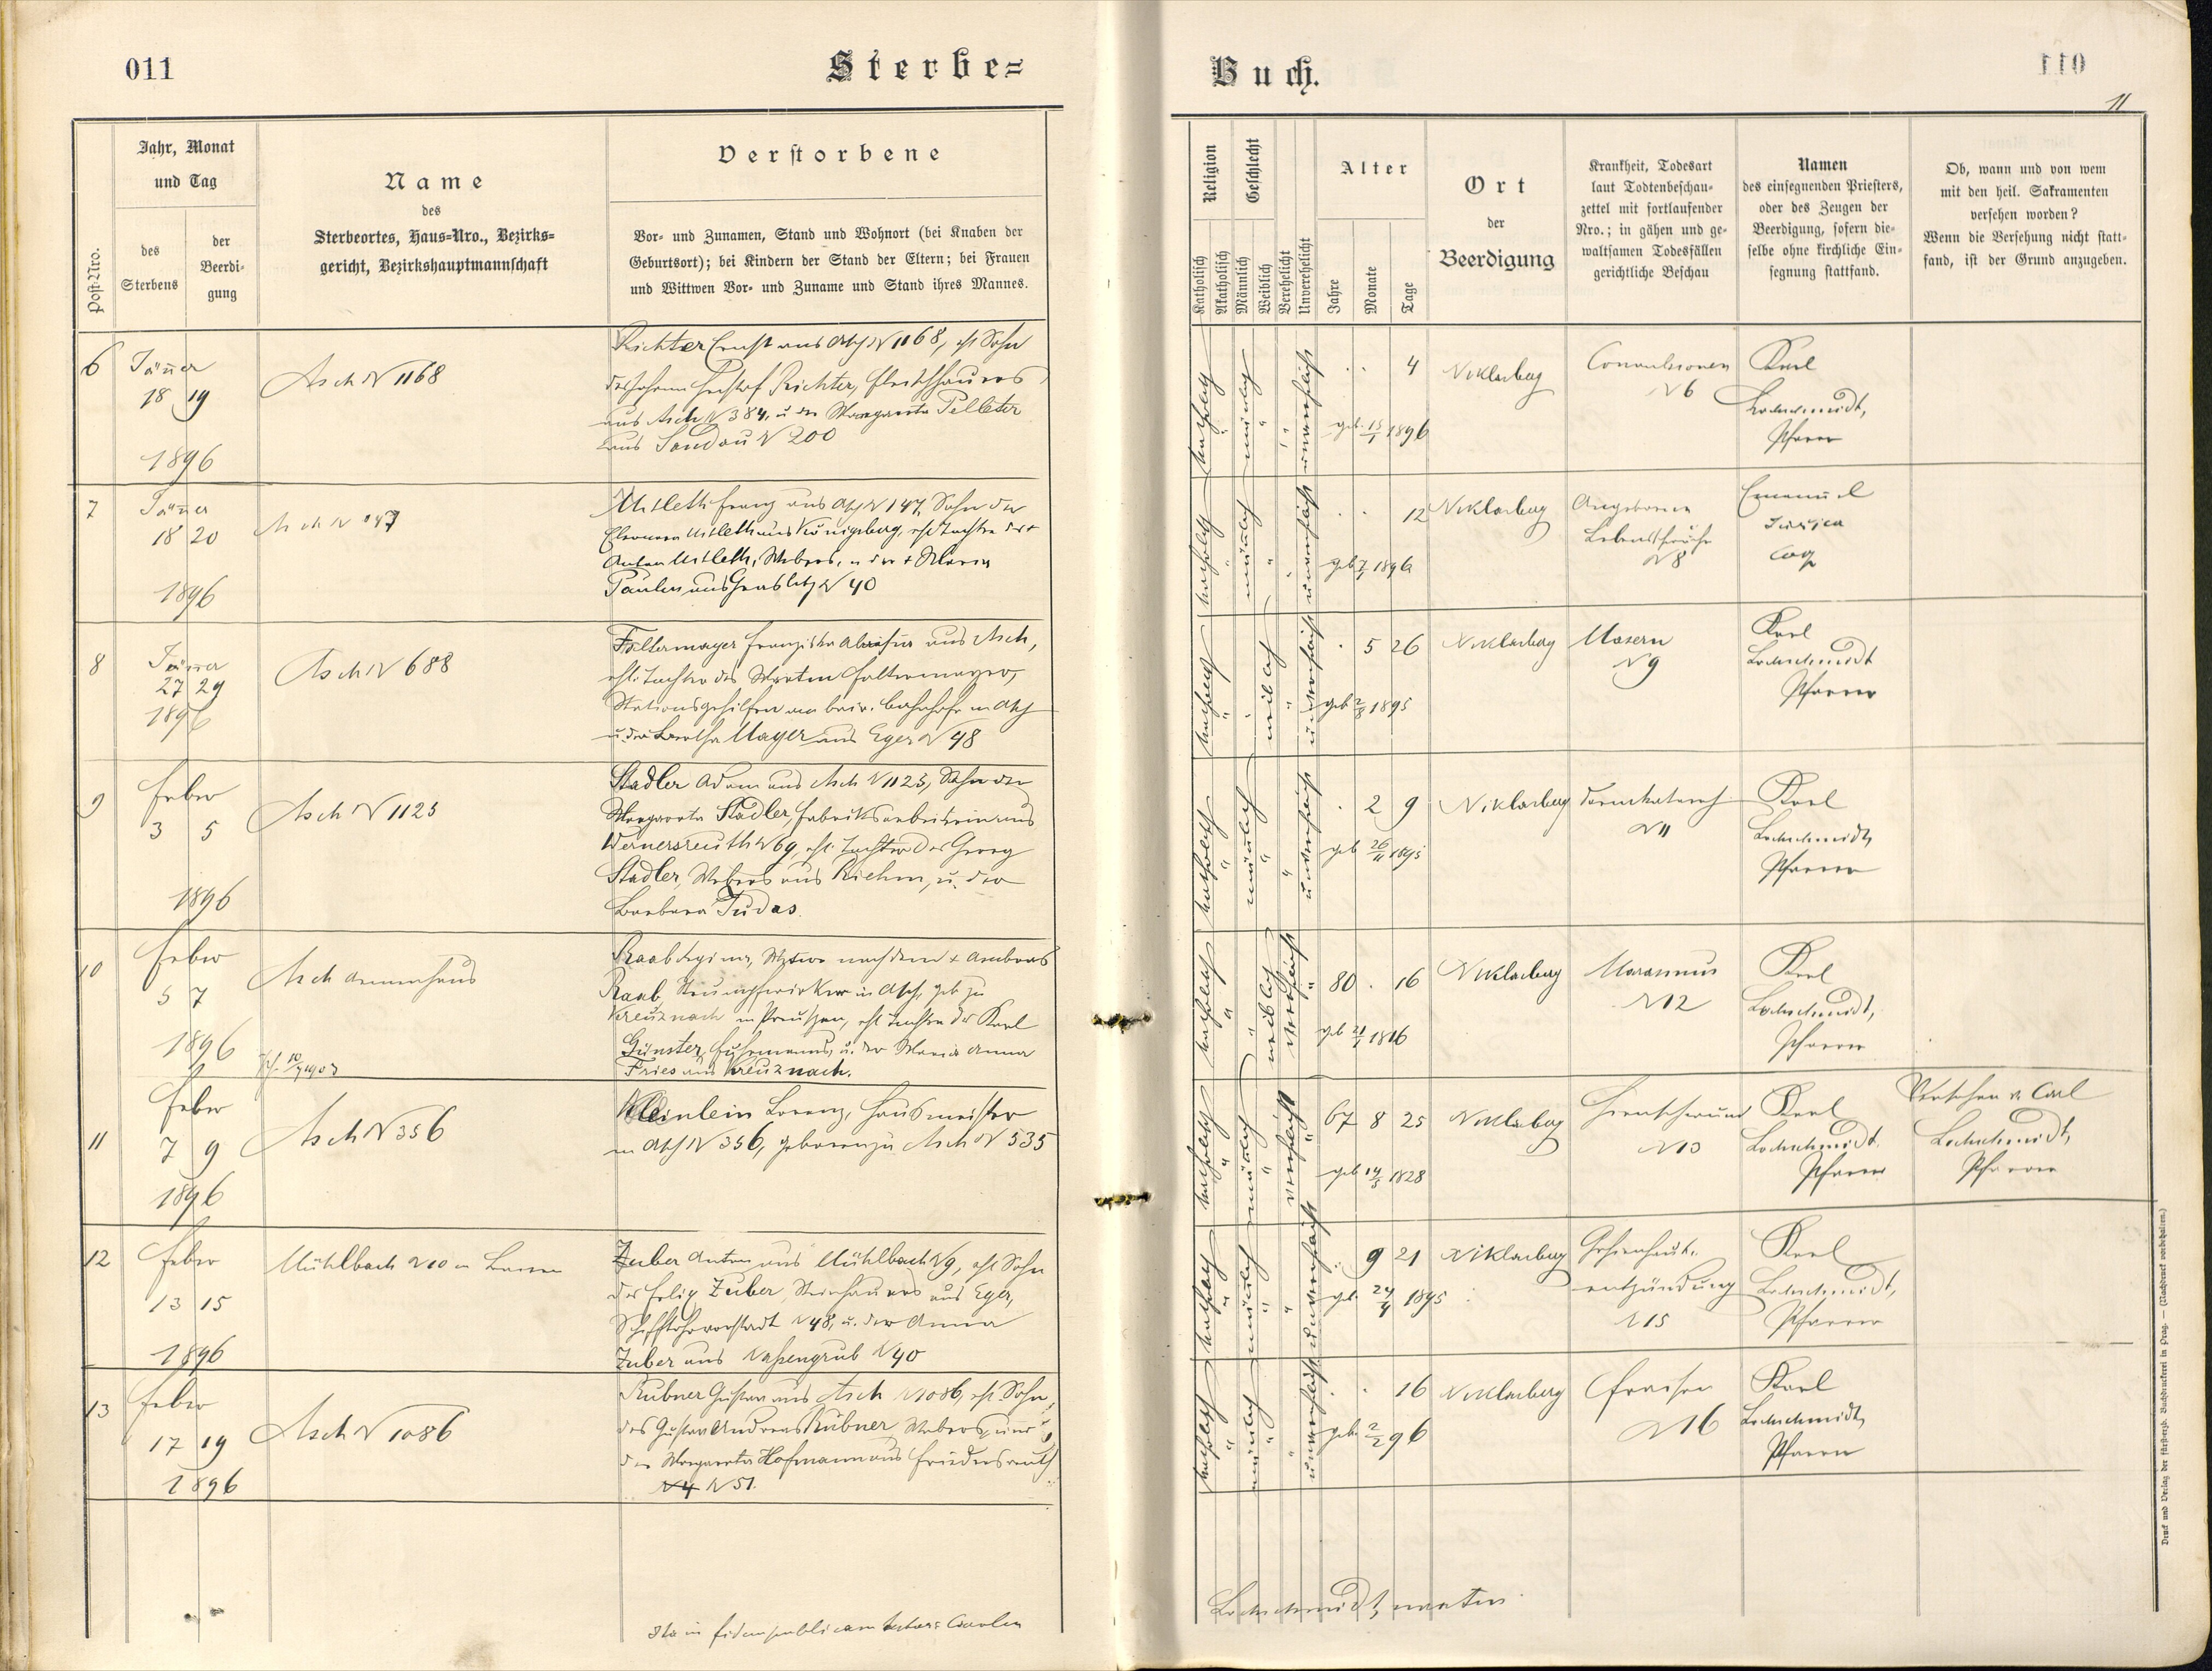 011
Sterbe=
Jahr, Monat
und Tag
Post-Nro.
des
Sterbens
der
Beerdi-
gung
Name
des
Sterbeortes, Haus-Nro., Bezirks=
gericht, Bezirkshauptmannschaft
Verstorbene
Vor- und Zunamen, Stand und Wohnort (bei Knaben der
Geburtsort); bei Kindern der Stand der Eltern; bei Frauen
und Wittwen Vor- und Zuname und Stand ihres Mannes.
6
Jänner
18 19
1896
Asch N 1168
Richter Ernst aus Asch N 1168, ehl Sohn
des Johann Richter, Fleischhauers
aus Asch N 384, u. der Margareta Pelleter
aus Sandau N 200
7
Jänner
18 20
1896
Asch N 147
Mitleth Franz aus Asch N 147, Sohn der
Eleonora Mitleth aus Königsberg, ehl Tochter des +
Anton Mitleth, Webers, u der + Maria
Paulus aus Graslitz N 40
8
Jänner
27 29
1896
Asch N 688
Faltermayer Franziska Aloisia aus Asch,
ehl. Tochter des Martin Faltermayer,
Stationsgehilfen am bair. Bahnhofe in Asch
u. der Bertha Mayer aus Eger N 48
9
Feber
3 5
1896
Asch N 1125
Stadler Adam aus Asch N 1125, Sohn der
Margareta Stadler, Fabriksarbeiterin aus
Wernersreuth N 69, ehl. Tochter des Georg
Stadler, Webers aus Riehm, u. der
Barbara Judas.
10
Feber
5 7
1896
Asch Armenhaus
Raab Regina, Witwe nach dem + Ambros
Raab, Strumpfwirker in Asch, geb zu
Kreuznach in Preußen, ehl Tochter des Karl
Günster, Fuhrmanns, u. der Maria Anna
Fries aus Kreuznach.
11
Feber
7 9
1896
Asch N 356
Kleinlein Lorenz, Hausmeister
in Asch N 356, geboren zu Asch N 535
12
Feber
13 15
1896
Mühlbach N 10
Zuber Anton aus Mühlbach N 9, ehl Sohn
des Felix Zuber, Steinhauers aus Eger,
Schifftohrvorstadt N 48, u. der Anna
Zuber aus Nassengrub N 40
13
Feber
17 19
1896
Asch N 1086
Rubner Gustav aus Asch N 1086, ehl. Sohn
des Gustav Andreas Rubner, Webers, und
der Margareta Hofmann aus Friedersreuth
N 4 N 51.
Ita in fidem publicam
Buch.
11
Religion
Katholisch
Akatholisch
Geschlecht
Männlich
Weiblich
Verehelicht
Unverehelicht
Alter
Jahre
Monate
Tage
Ort
der
Beerdigung
Krankheit, Todesart
laut Todtenbeschau-
zettel mit fortlaufender
Nro.; in gähen und ge-
waltsamen Todesfällen
gerichtliche Beschau
Namen
des einsegnenden Priesters,
oder des Zeugen der
Beerdigung, sofern die-
selbe ohne kirchliche Ein-
segnung stattfand.
Ob, wann und von wem
mit den heil. Sakramenten
versehen worden?
Wenn die Versehung nicht statt-
fand, ist der Grund anzugeben.
katholisch männlich unverehelicht
4
geb. 15/1 1896
Niklasberg
Convulsionen
N 6
Karl
Lochschmidt,
Pfarrer
katholisch männlich unverehelicht
12
geb 7/1 1896
Niklasberg
Angeborene
Lebensschwäche
N 8
Emanuel
Coop
katholisch weiblich unverehelicht
5 26
geb 2/8 1895
Niklasberg
Masern
N 9
Karl
Lochschmidt
Pfarrer
katholisch männlich unverehelicht
2 9
geb 26/11 1895
Niklasberg
Darmkatarrh
N 11
Karl
Lochschmidt,
Pfarrer
katholisch weiblich verehelicht
80 . 16
geb 21/1 1816
Niklasberg
Marasmus
N 12
Karl
Lochschmidt,
Pfarrer
katholisch männlich verehelicht
67 8 25
geb 14/5 1828
Niklasberg
N 13
Karl
Lochschmidt.
Pfarrer
Versehen v. Carl
Lochschmidt,
Pfarrer
katholisch männlich unverehelicht
9 21
geb. 24/4 1895
Niklasberg
Gehirnhaut-
entzündung
N 15
Karl
Lochschmidt,
Pfarrer
katholisch männlich unverehelicht
16
geb. 2/2 96
Niklasberg
Fraisen
N 16
Karl
Lochschmidt,
Pfarrer
Lochschmidt,
Druck und Verlag der fürsterzb. Buchdruckerei in Prag. — (Nachdruck vorbehalten.)